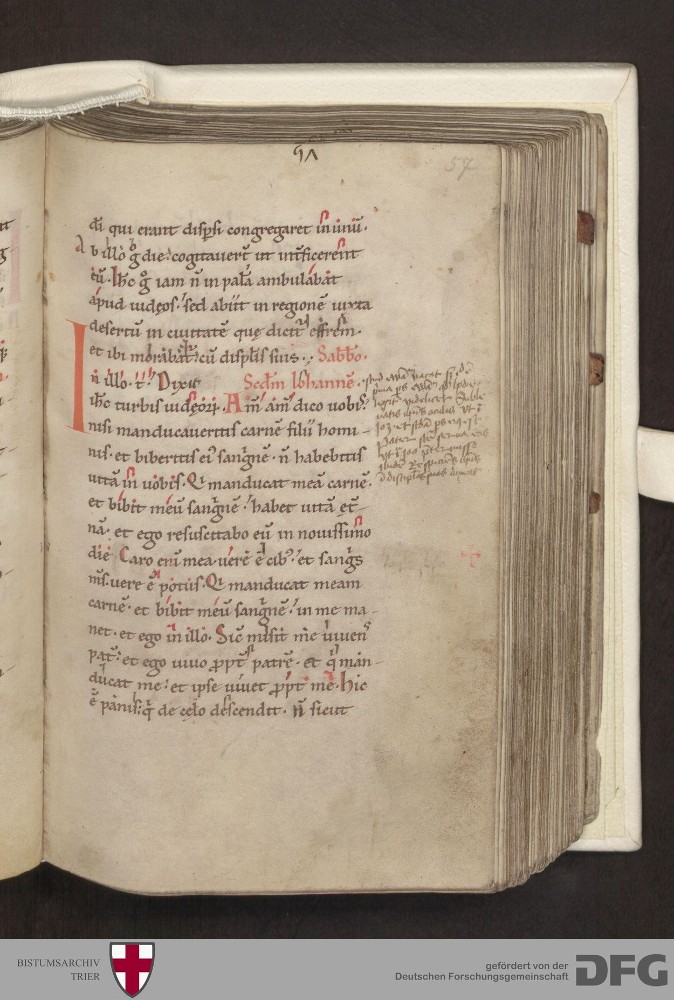 57
dī qui erant dispsi congregaret in unū.
Ab illo g die cogitauert ut intficerent
eū. Ihc g iam n̄ in palā ambulabat
apud iudęos. sed abiit in regionē iuxta
desertū in ciuitatē quę dicit effrem.
et ibi morabat cū displis suis. Sabbo.
In illo. t. Dixit Scdm Iohannē.
ihc turbis iudęorū. Am̄ am̄ dico uobis.
nisi manducaueritis carnē filii homi
nis. et biberitis eī sangnē. n̄ habebitis
uitā in uobis. Qi manducat meā carnē.
et bibit meū sangnē. habet uitā ęt
nā. et ego resuscitabo eū in nouissimo
die Caro enī mea uere ē cib. et sangs
ms. uere ē potus. Qi manducat meam
carnē. et bibit meū sangnē. in me ma-
net. et ego in illo. Sic misit me uiuens
pat. et ego uiuo ppt patrē. et qi man-
ducat me. et ipse uiuet ppt me. hic
ē panis. q de cęlo descendit. N̄ sicut
BISTUMSARCHIV
TRIER
gefördert von der
Deutschen Forschungsgemeinschaft
DFG